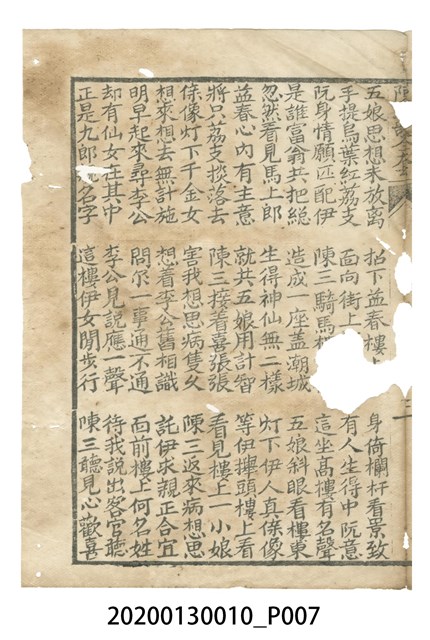 五娘思想未放离 招下益春樓 身倚欄杆看景致
手提烏葉紅荔支 面向街上 有人生得中阮意
阮身情願匹配伊 陳三騎馬 這坐高樓有名聲
是誰富翁共把総 造成一座盖潮城 五娘斜眼看樓東
忽然看見馬上郎 生得神仙無二樣 灯下伊人真像
益春心內有主意 就共五娘用計智 等伊擡頭樓上看
將只荔支掞落去 陳三接着喜張張 看見樓上一小娘
像灯下千金女 害我想思病隻久 陳三返來病想思
想來想去無計施 想着李公舊相識 託伊求親正合宜
明早起來尋李公 問尔一事通不通 面前樓上何名姓
却有仙女在其中 李公見說應一聲 待我說出客官聽
正是九郎名字 這樓伊女閒步行 陳三聽見心歡喜
20200130010_P007